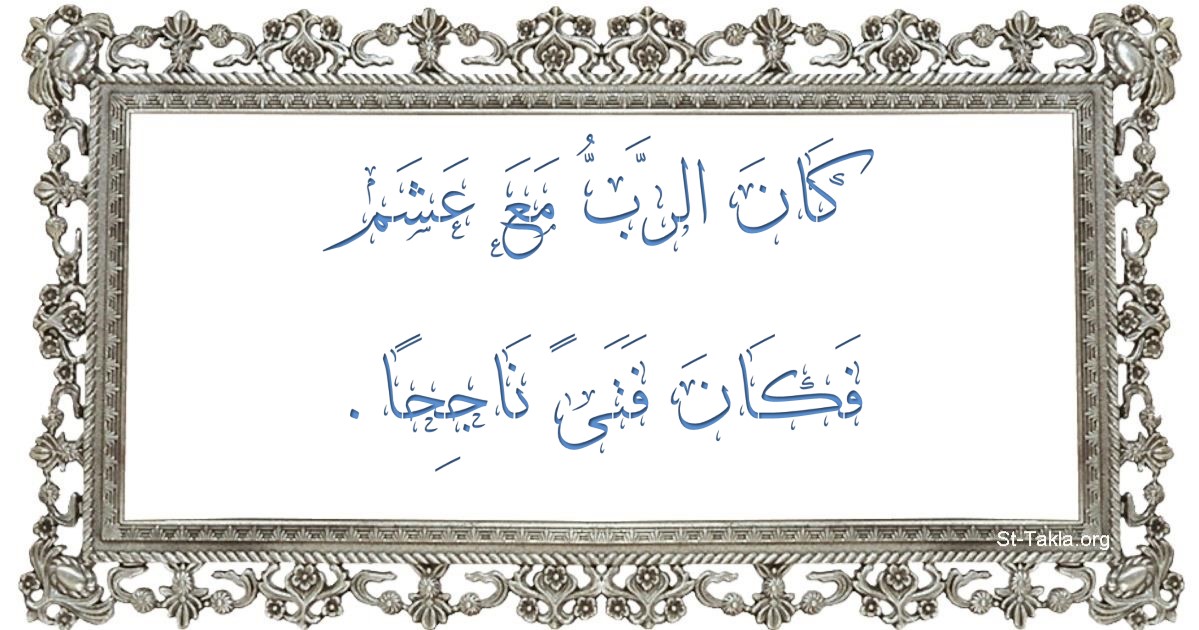 كَانَ الرَّبُّ مَعَ عَشَمْ
فَكَانَ فَتَىً نَاجِحًا .
St-Takla.org